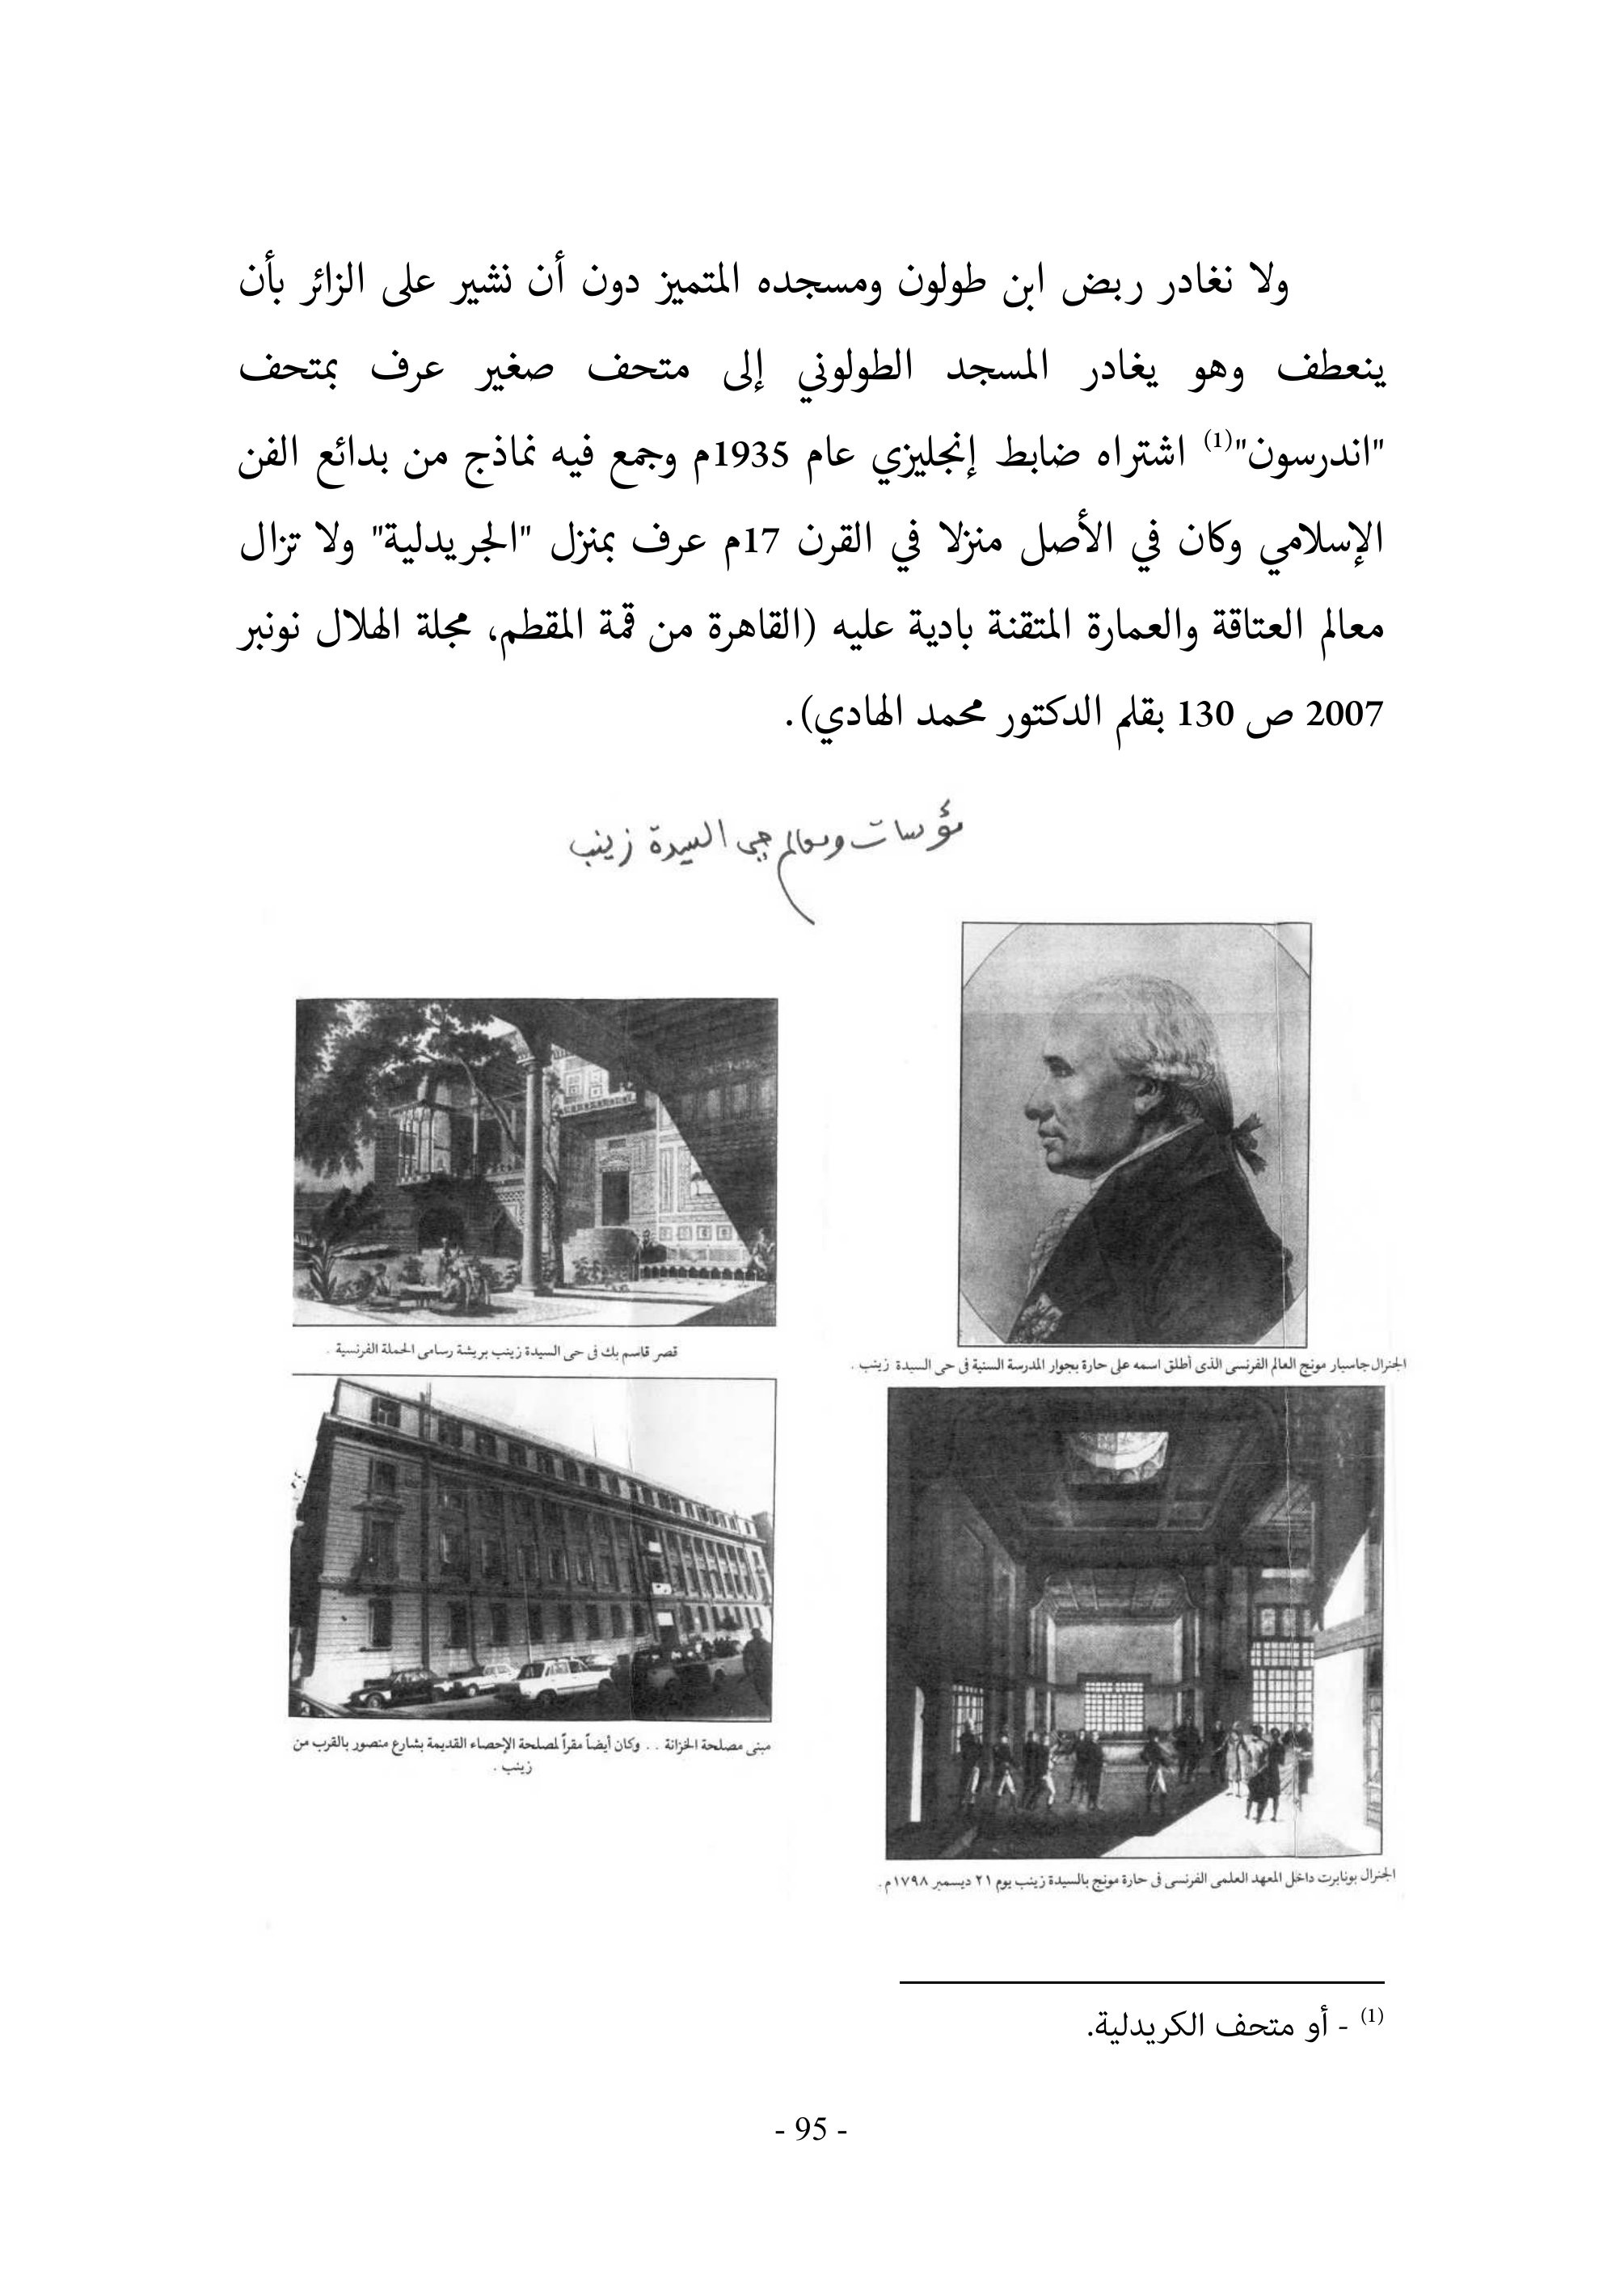 ولا نغادر ربض ابن طولون ومسجده المتميز دون أن نشير على الزائر بأن
ينعطف وهو يغادر المسجد الطولوني إلى متحف صغير عرف بمتحف
"اندرسون"(1) اشتراه ضابط إنجليزي عام 1935م وجمع فيه نماذج من بدائع الفن
الإسلامي وكان في الأصل منزلا في القرن 17م عرف بمنزل "الجريدلية" ولا تزال
معالم العتاقة والعمارة المتقنة بادية عليه (القاهرة من قمة المقطم، مجلة الهلال نونبر
2007 ص 130 بقلم الدكتور محمد الهادي).
مؤسسات ومعالم حي السيدة زينب
الجنرال جاسبار مونج العالم الفرنسى الذى أطلق اسمه على حارة بجوار المدرسة السنية فى حى السيدة زينب .
قصر قاسم بك فى حى السيدة زينب بريشة رسامى الحملة الفرنسية .
الجنرال بونابرت داخل المعهد العلمى الفرنسى فى حارة مونج بالسيدة زينب يوم ٢١ ديسمبر ١٧٩٨م .
مبنى مصلحة الخزانة . . وكان أيضاً مقراً لمصلحة الإحصاء القديمة بشارع منصور بالقرب من
زينب .
(1) - أو متحف الكريدلية.
- 95 -